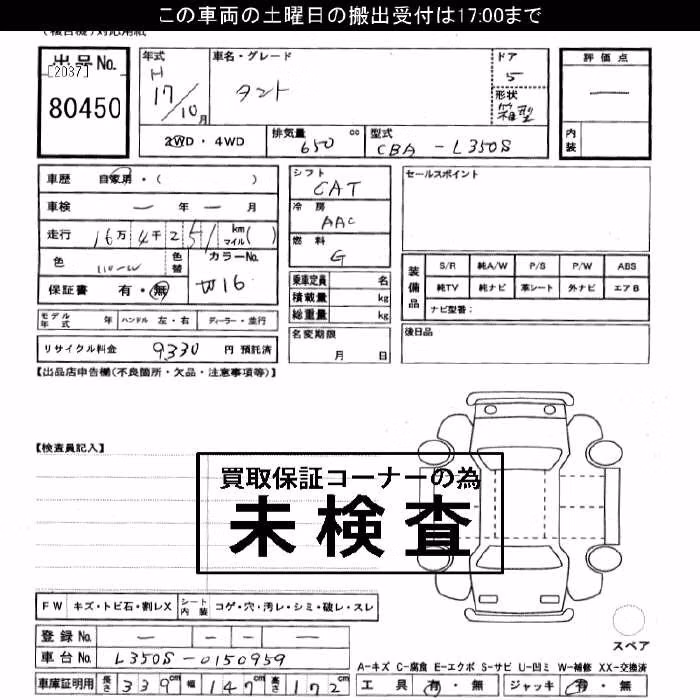 この車両の土曜日の搬出受付は17:00まで
(複合機)対応用紙
出品No.
[2037]
80450
年式
H
17/10月
車名・グレード
タント
ドア
5
形状
箱型
評価点
—
内装
2WD・4WD
排気量 650 cc
型式 CBA - L350S
車歴 自家用・( )
車検 — 年 — 月
走行 16万4千251 km マイル( )
色
色替
カラーNo. W16
保証書 有・無
シフト CAT
冷房 AAC
燃料 G
乗車定員 名
積載量 kg
総重量 kg
セールスポイント
装備品
S/R 純A/W P/S P/W ABS
純TV 純ナビ 革シート 外ナビ エアB
ナビ型番:
モデル年式 年
ハンドル 左・右
ディーラー・並行
名変期限
月 日
後日品
リサイクル料金 9330 円 預託済
【出品店申告欄(不良箇所・欠品・注意事項等)】
【検査員記入】
買取保証コーナーの為
未検査
FW キズ・トビ石・割レX
シート内装 コゲ・穴・汚レ・シミ・破レ・スレ
登録No. — - - —
車台No. L350S-0150959
車庫証明用 長さ 339cm 幅 147cm 高さ 172cm
スペア
A-キズ C-腐食 E-エクボ S-サビ U-凹ミ W-補修 XX-交換済
工具 有・無 ジャッキ 有・無